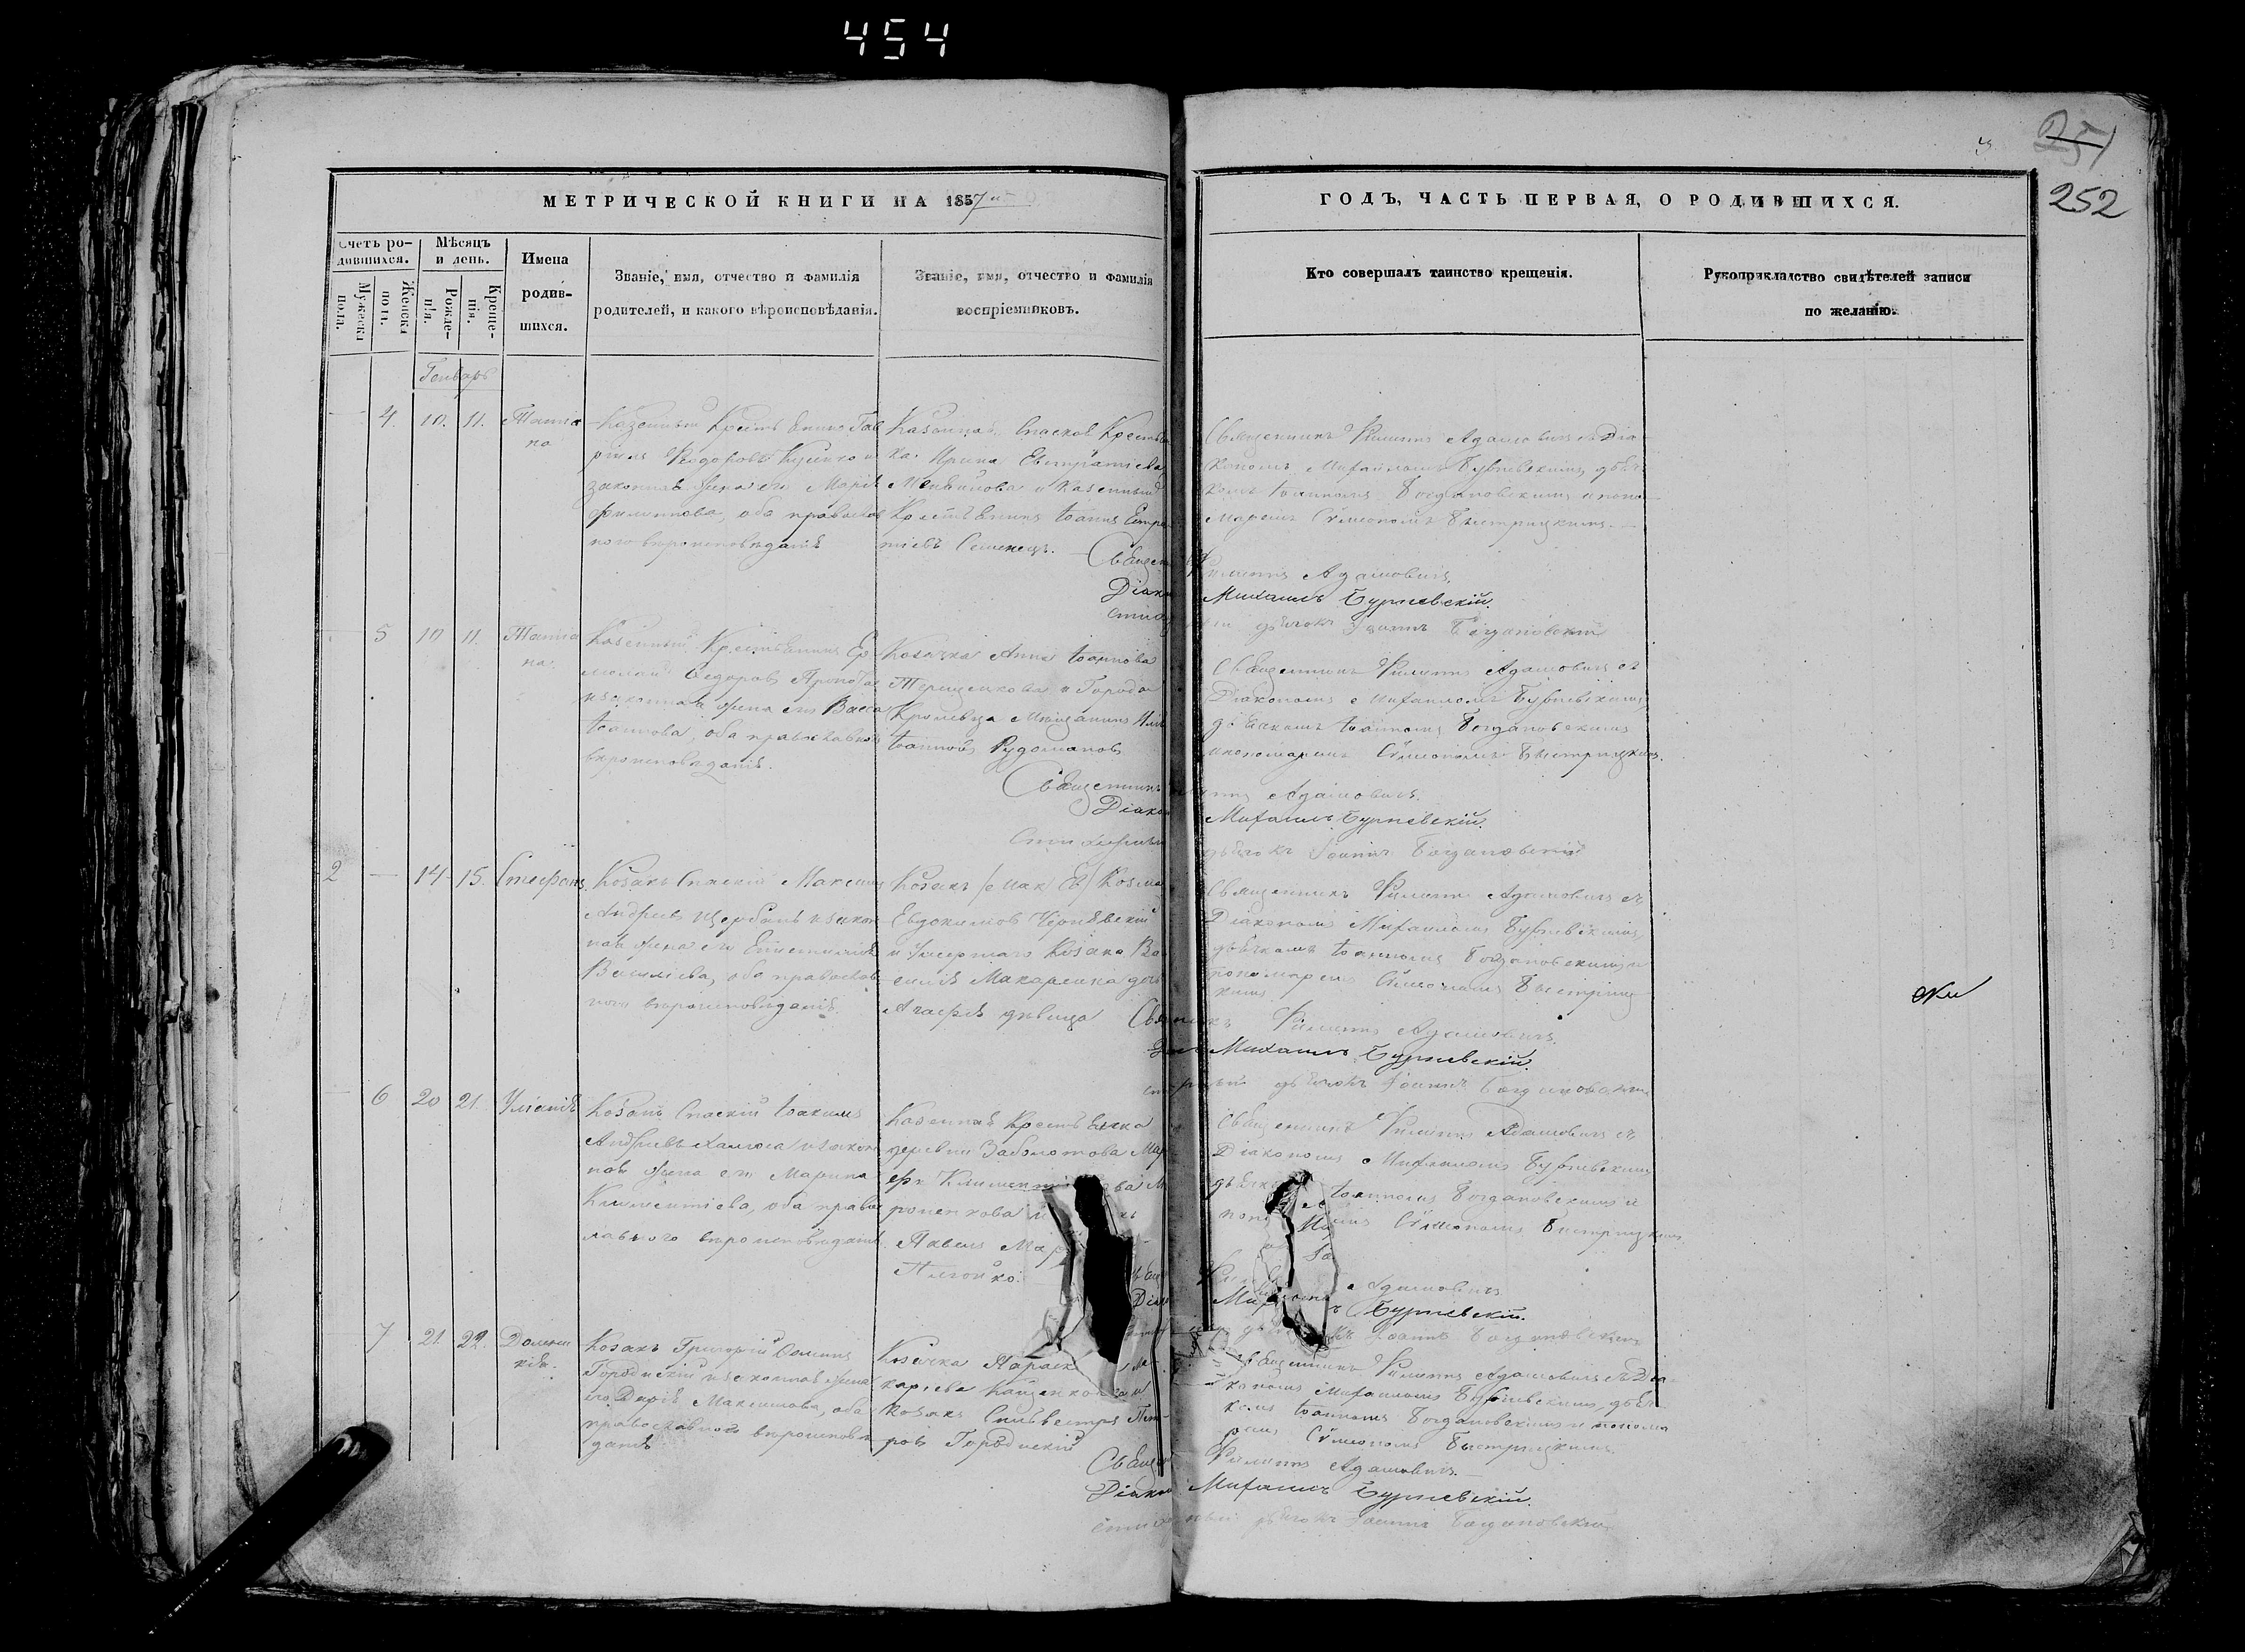 454
251
252
МЕТРИЧЕСКОЙ КНИГИ НА 1857й
ГОДЪ, ЧАСТЬ ПЕРВАЯ, О РОДИВШИХСЯ.
Счетъ ро-
дившихся.
Мужеска
пола.
Женска
пола.
Мѣсяцъ
и день.
Рожде-
нія.
Креще-
нія.
Имена
родив-
шихся.
Званіе, имя, отчество и фамилія
родителей, и какого вѣроисповѣданія.
Званіе, имя, отчество и фамилія
воспріемниковъ.
Кто совершалъ таинство крещенія.
Рукоприкладство свидѣтелей записи
по желанію.
Генварь
4. 10. 11. Татіа
на
Казенный Крестьянинъ Гав
Ѳедоровъ
законная жена его Марія
Филиппова, оба православ
наго вѣроисповѣданія
Спаская Крестьян
ка Ирина Евстратіева
и Казенный
Крестьянинъ Іоаннъ Евстра
тіевъ Семенецъ.
Священникъ Филиппъ Адамовичъ съ Діа
кономъ Михаиломъ Бурневскимъ, дьяч
комъ Іоанномъ Богдановскимъ и поно
маремъ Сѵмеономъ Быстрицкимъ.
Священникъ Филиппъ Адамовичъ.
Діаконъ Михаилъ Бурневскій.
дьячокъ Іоаннъ Богдановскій
5 10 11. Татіа
на.
Казенный Крестьянинъ Ер
молай Ѳедоровъ
и законная жена его Васса
Іоаннова, оба православнаго
вѣроисповѣданія.
Козачка Анна Іоаннова
Терещенкова и Города
Кролевца Мѣщанинъ
Іоанновъ Рудомановъ
Священникъ Филиппъ Адамовичъ съ
Діакономъ Михаиломъ Бурневскимъ,
дьячкомъ Іоанномъ Богдановскимъ
и пономаремъ Сѵмеономъ Быстрицкимъ.
Священникъ Филиппъ Адамовичъ.
Діаконъ Михаилъ Бурневскій.
Стихарный дьячокъ Іоаннъ Богдановскій
2 — 14 15. Стефанъ
Козакъ Спаскій Максимъ
Андреевъ Щербакъ и закон
ная жена его Епистимія
Василіева, оба православ
наго вѣроисповѣданія.
Козакъ Козма
Евдокимовъ Чернявскій
и умершаго Козака Ва
силія Макаренка дочь
Агафія дѣвица
Священникъ Филиппъ Адамовичъ съ
Діакономъ Михаиломъ Бурневскимъ,
дьячкомъ Іоанномъ Богдановскимъ и
пономаремъ Сѵмеономъ Быстриц
кимъ
Филиппъ Адамовичъ.
Михаилъ Бурневскій.
дьячокъ Іоаннъ Богдановскій
6 20 21. Уліанія
Козакъ Спаскій Іоакимъ
Андреевъ Халюса и закон
ная жена его Марина
Климентіева, оба правос
лавнаго вѣроисповѣданія
Казенная Крестьянка
деревни Заболотова Мар
фа
Павелъ
Священникъ Филиппъ Адамовичъ съ
Діакономъ Михаиломъ Бурневскимъ
Іоанномъ Богдановскимъ и
Сѵмеономъ Быстрицкимъ
Адамовичъ
Бурневскій.
Іоаннъ Богдановскій
7 21. 22. Домни
кія.
Козакъ Григорій Ѳоминъ
Городискій и законная жена
его Дарія Максимова, оба
православнаго вѣроисповѣ
данія
Козачка Параск
Козакъ Сильвестръ Пет
ровъ Городискій
Священникъ Филиппъ Адамовичъ съ Діа
кономъ Михаиломъ Бурневскимъ, дьяч
комъ Іоанномъ Богдановскимъ и понома
ремъ Сѵмеономъ Быстрицкимъ
Филиппъ Адамовичъ.
Михаилъ Бурневскій.
дьячокъ Іоаннъ Богдановскій